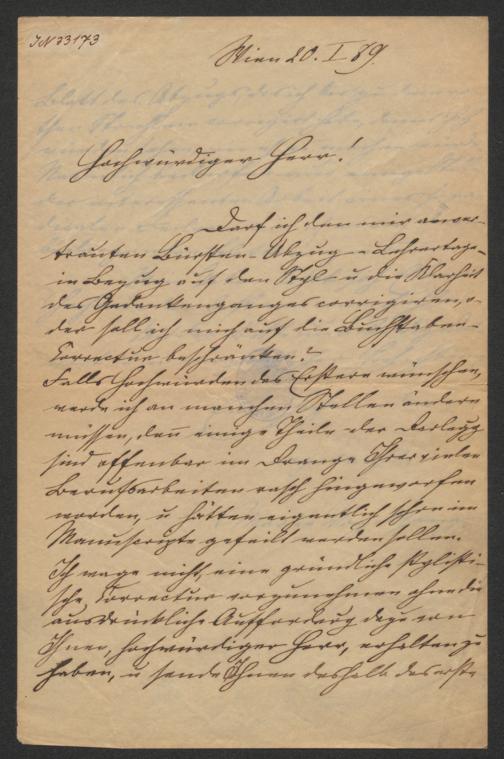 IN 33173
Wien 20. I 89.
Hochwürdiger Herr!
Darf ich den mir anver-
trauten Bürsten-Abzug „Lehrertage„
in Bezug auf den Styl u die Klarheit
des Gedankenganges corrigiren, o-
der soll ich mich auf die Buchstaben-
Correctur beschränken?
Falls Hochwürden das Erstere wünschen,
werde ich an manchen Stellen ändern
müssen, den̄ einige Theile der
sind offenbar im Drange Ihrer vielen
Berufsarbeiten rasch hingeworfen
worden, u hätten eigentlich schon im
Manuscripte gefeilt werden sollen.
Ich wage nicht, eine gründliche stylisti-
sche Correctur vorzunehmen ohne die
ausdrückliche Aufforderung dazu von
Ihnen, hochwürdiger Herr, erhalten zu
haben, u sende Ihnen deshalb das erste